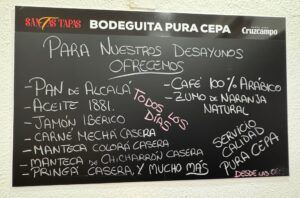 SANTAS TAPAS
BODEGUITA PURA CEPA
Cruzcampo
PARA NUESTROS DESAYUNOS
OFRECEMOS
- PAN DE ALCALÁ
- ACEITE 1881.
- JAMÓN IBERICO
- CARNE MECHÁ CASERA
- MANTECA COLORÁ CASERA
- MANTECA DE CHICHARRÓN CASERA
- PRINGÁ CASERA, Y MUCHO MÁS
TODOS LOS
DÍAS
- CAFÉ 100% ARÁBICO
- ZUMO DE NARANJA
NATURAL
SERVICIO
CALIDAD
PURA CEPA
DESDE LAS